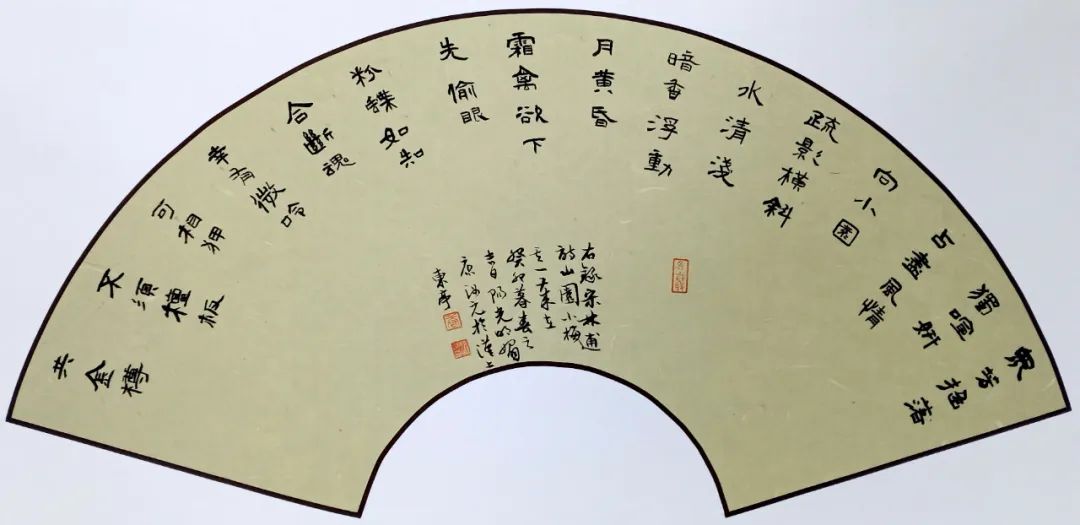 衆芳搖落
獨喧妍
占盡風情
向小園
疏影橫斜
水清淺
暗香浮動
月黃昏
霜禽欲下
先偷眼
粉蝶如知
合斷魂
幸有微吟
可相狎
不須檀板
共金樽
右錄宋林逋
詩山園小梅
一
癸卯暮春之
吉日陽光明媚
元於漢上
東亭